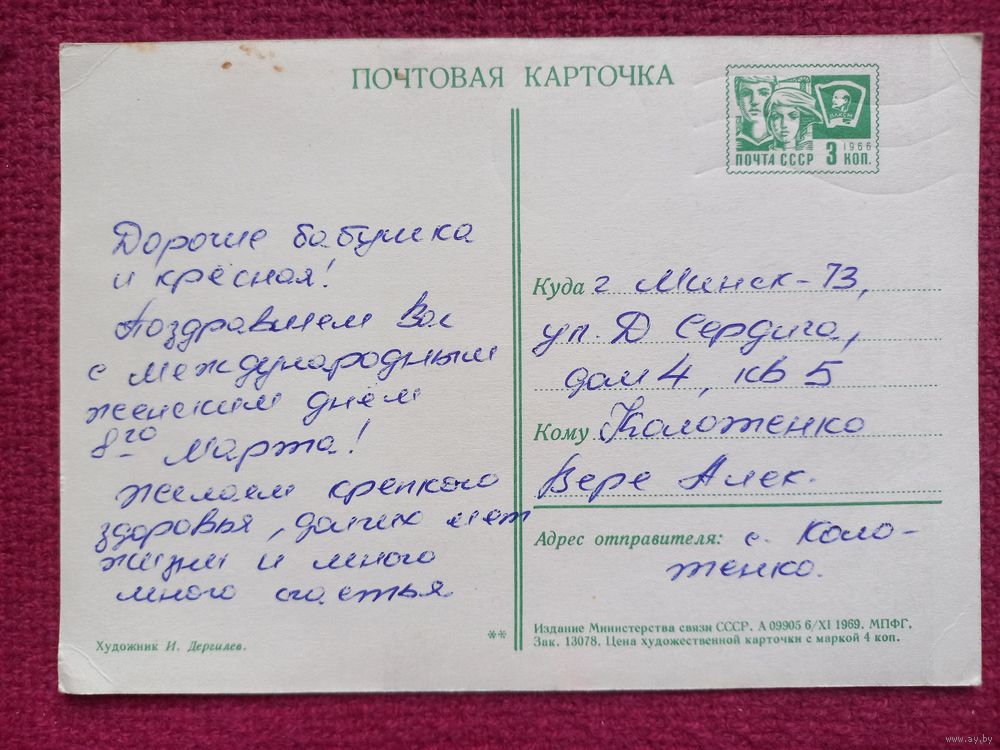 ПОЧТОВАЯ КАРТОЧКА
ВЛКСМ
1966
ПОЧТА СССР 3 КОП.
Дорогие бабушка
и крёсная!
Поздравляем Вас
с международным
женским днём
8го Марта!
Желаем крепкого
здоровья, долгих лет
жизни и много
много счастья.
Художник И. Дергилев.
**
Куда г Минск-73,
ул. Д Сердича,
дом 4, кв 5
Кому Коложенко
Вере Алек.
Адрес отправителя: с. Коло-
женко.
Издание Министерства связи СССР. А 09905 6/XI 1969. МПФГ.
Зак. 13078. Цена художественной карточки с маркой 4 коп.
www.ay.by